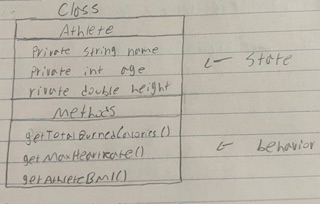 Class
Athlete
Private string name
Private int age
rivate double height
Methods
getTotalBurnedCalories()
getMaxHeartrate()
getAthleteBMI()
← State
← behavior